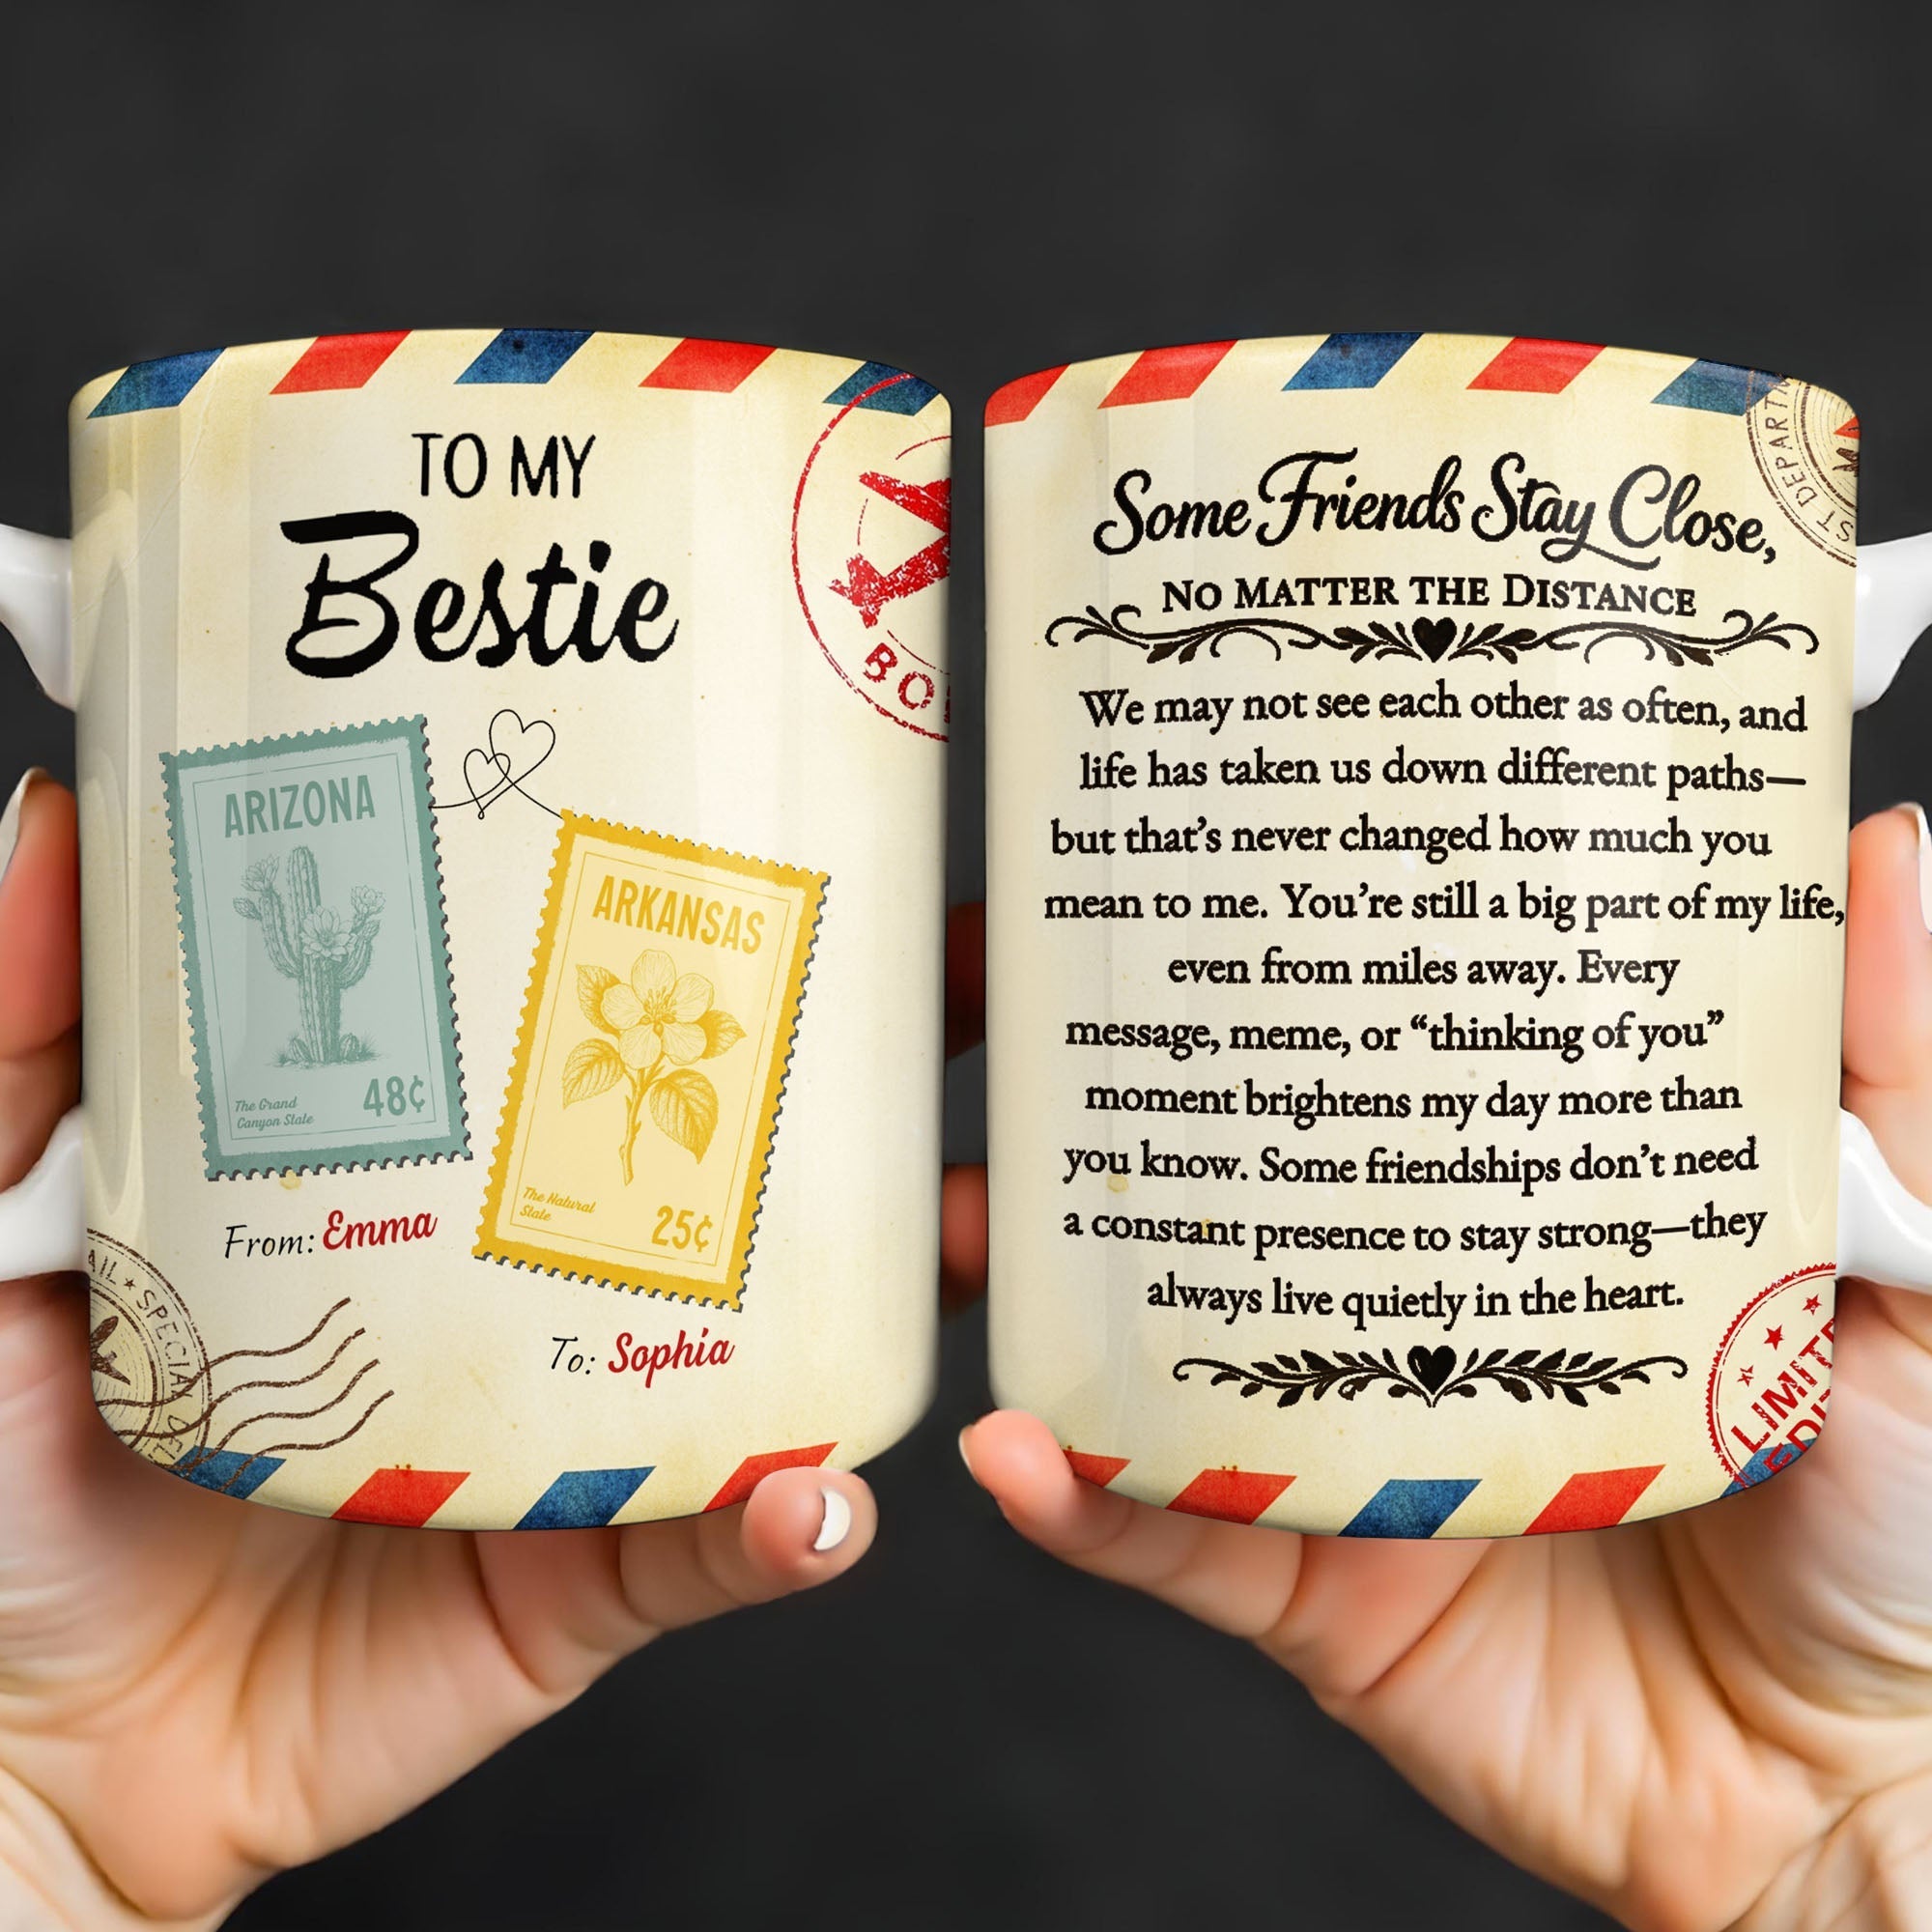 TO MY
Bestie
ARIZONA
The Grand
Canyon State
48¢
ARKANSAS
The Natural
State
25¢
From: Emma
To: Sophia
SPECIAL
Some Friends Stay Close,
NO MATTER THE DISTANCE
We may not see each other as often, and
life has taken us down different paths—
but that’s never changed how much you
mean to me. You’re still a big part of my life,
even from miles away. Every
message, meme, or “thinking of you”
moment brightens my day more than
you know. Some friendships don’t need
a constant presence to stay strong—they
always live quietly in the heart.